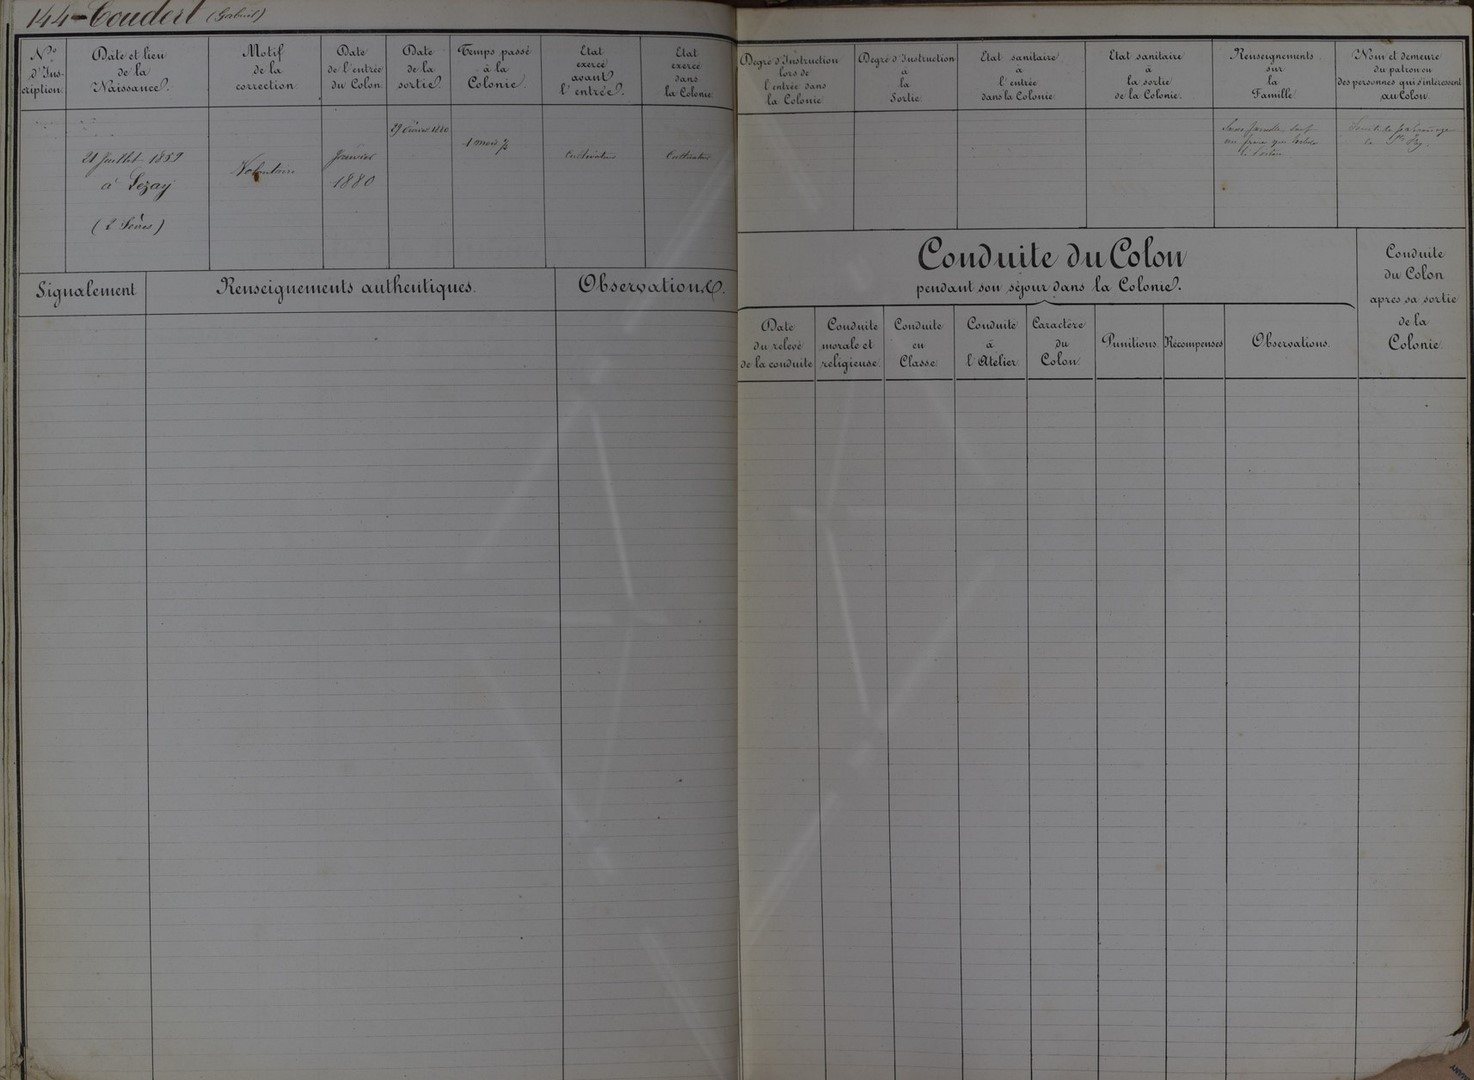 144 - Coudert (Gabriel)
N.o d'Ins-cription.
Date et lieu de la Naissance.
Motif de la correction
Date de l'entrée du Colon
Date de la sortie.
Temps passé à la Colonie.
Etat exercé avant l'entrée.
Etat exercé dans la Colonie
Degré d'Instruction lors de l'entrée dans la Colonie
Degré d'Instruction à la Sortie
Etat sanitaire à l'entrée dans la Colonie
Etat sanitaire à la sortie de la Colonie.
Renseignements sur la Famille
Nom et demeure du patron ou des personnes qui s'intéressent au Colon.
21 Juillet 1859
à Lezay
(2 Sèvres)
Volontaire
Janvier
1880
1 mois ½
Cultivateur
Cultivateur
Signalement
Renseignements authentiques.
Observations.
Conduite du Colon
pendant son séjour dans la Colonie.
Date du relevé de la conduite
Conduite morale et religieuse.
Conduite en Classe.
Conduite à l'Atelier
Caractère du Colon
Punitions.
Recompenses
Observations.
Conduite du Colon après sa sortie de la Colonie